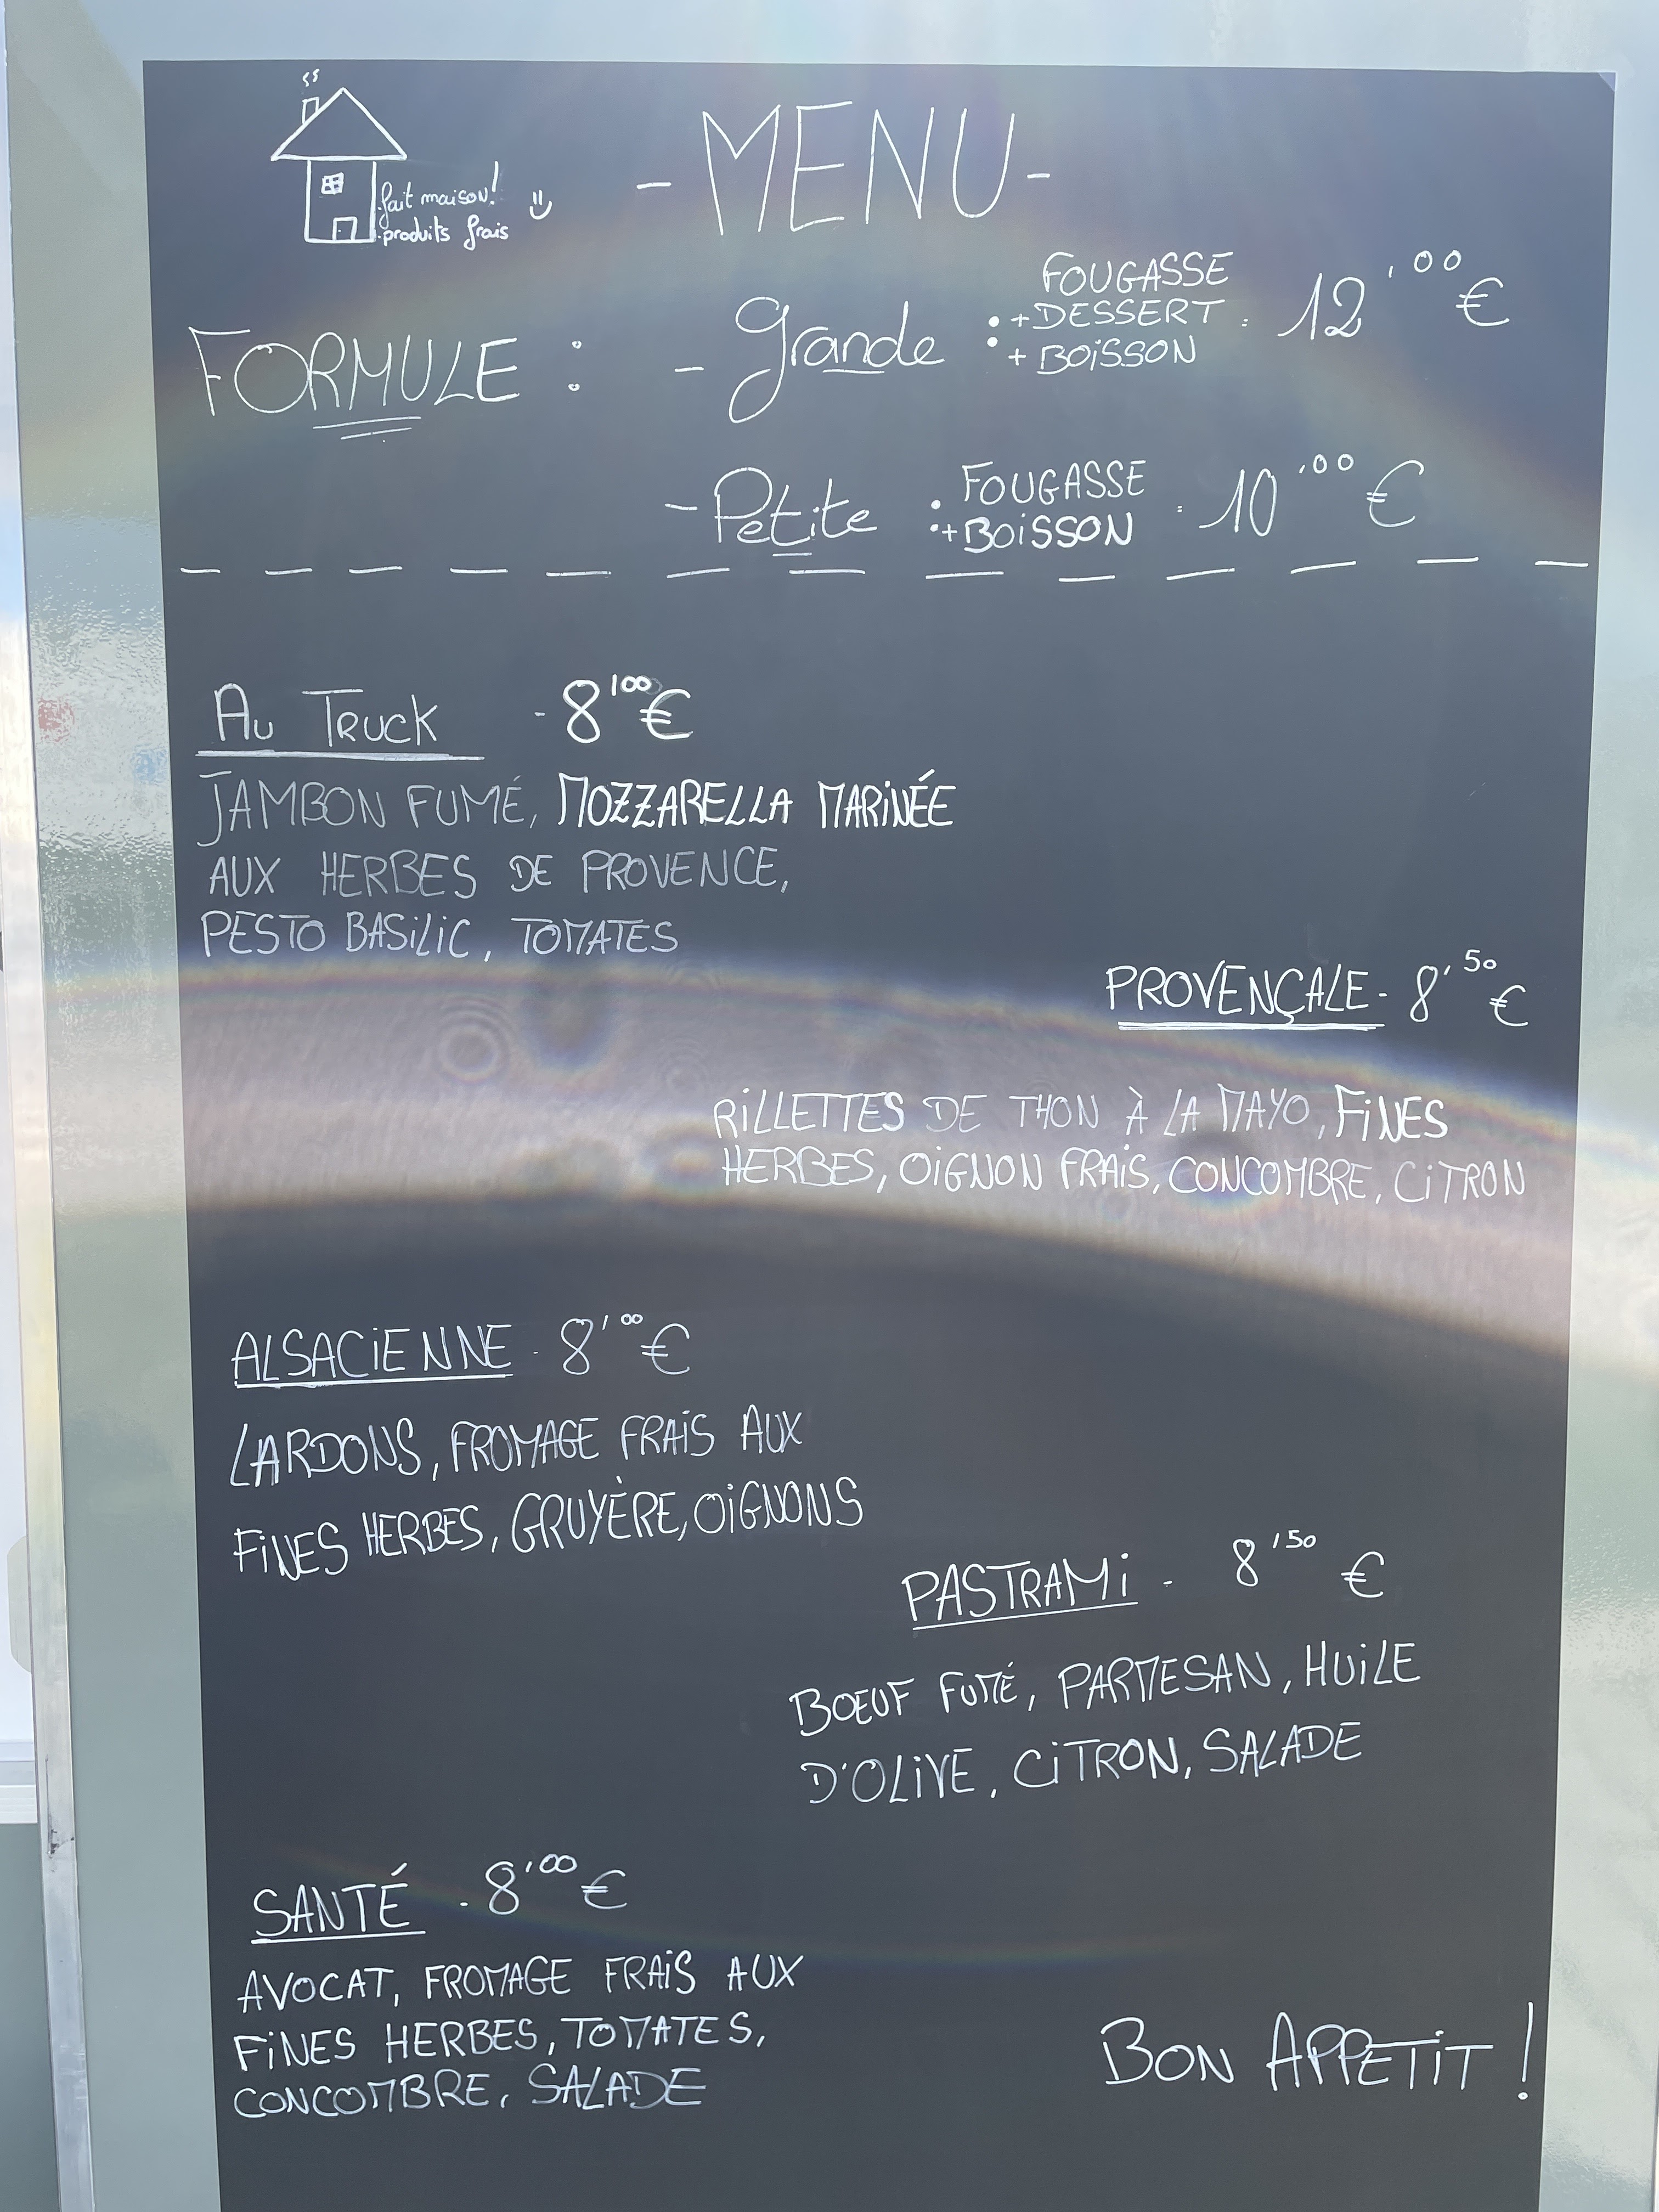 fait maison!
produits frais
- MENU -
FORMULE : - Grande : FOUGASSE
+ DESSERT : 12,00 €
+ BOISSON
- Petite : FOUGASSE
+ BOISSON : 10,00 €
AU TRUCK - 8,00 €
JAMBON FUMÉ, MOZZARELLA MARINÉE
AUX HERBES DE PROVENCE,
PESTO BASILIC, TOMATES
PROVENÇALE - 8,50 €
RILLETTES DE THON À LA MAYO, FINES
HERBES, OIGNON FRAIS, CONCOMBRE, CITRON
ALSACIENNE - 8,00 €
LARDONS, FROMAGE FRAIS AUX
FINES HERBES, GRUYÈRE, OIGNONS
PASTRAMI - 8,50 €
BOEUF FUMÉ, PARMESAN, HUILE
D'OLIVE, CITRON, SALADE
SANTÉ - 8,00 €
AVOCAT, FROMAGE FRAIS AUX
FINES HERBES, TOMATES,
CONCOMBRE, SALADE
BON APPETIT !